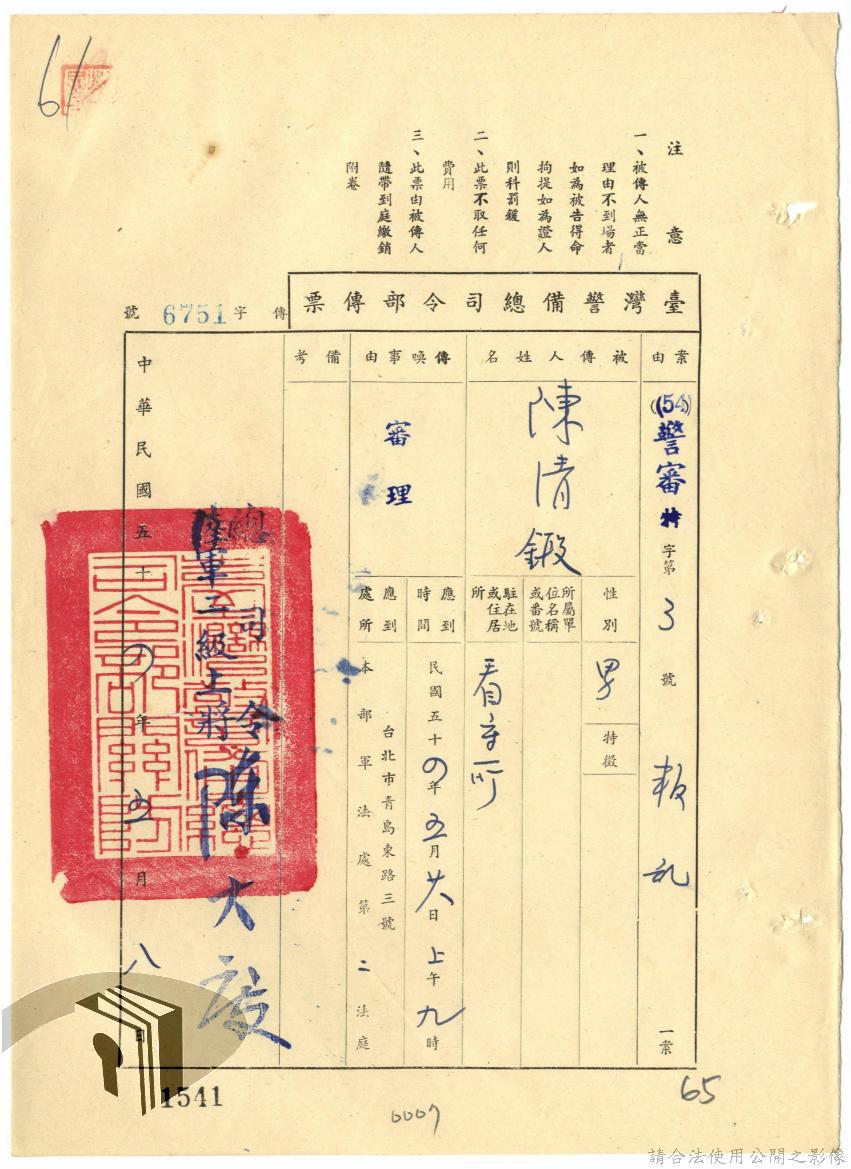 61
注意
一、被傳人無正當
理由不到場者
如為被告得命
拘提如為證人
則科罰鍰
二、此票不取任何
費用
三、此票由被傳人
隨帶到庭繳銷
附卷
臺灣警備總司令部傳票
傳字6751號
案由
(54)警審特字第3號 叛乱 一案
被傳人姓名
陳清鍛
性別
男
特徵
所屬單
位名稱
或番號
駐在地
或住居
所
看守所
傳喚事由
審理
應到
時間
民國五十四年五月廿八日上午九時
應到
處所
台北市青島東路三號
本部軍法處第二法庭
備考
總司令
陸軍二級上將陳大慶
中華民國五十四年五月八日
1541
0007
65
請合法使用公開之影像